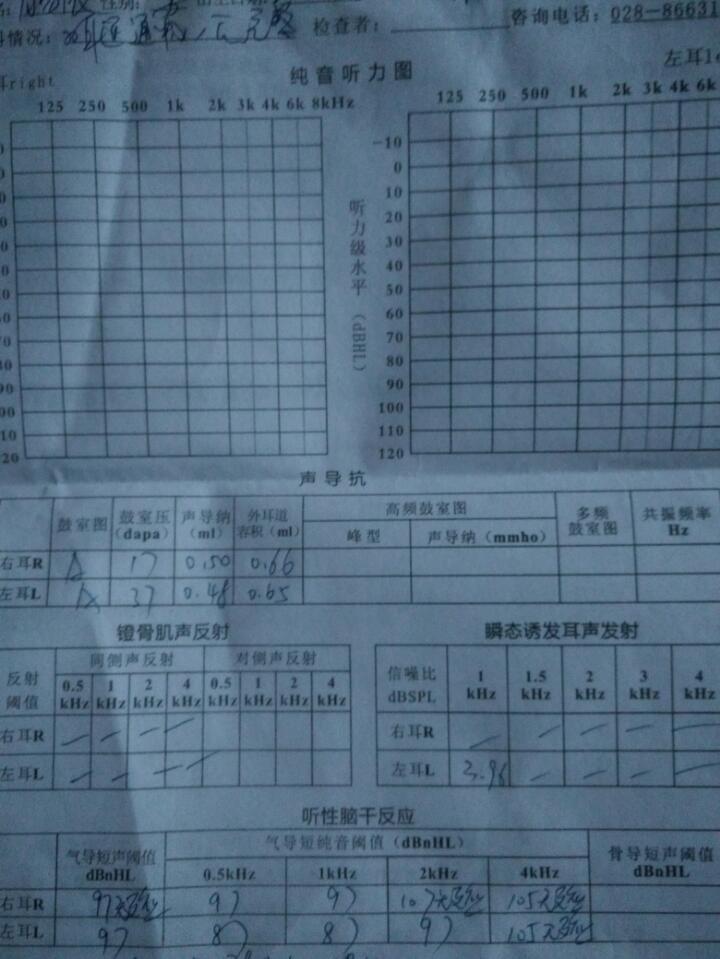 性别:
咨询电话: 028-86631
情况: 检查者:
纯音听力图
耳right
左耳l
125 250 500 1k 2k 3k 4k 6k 8kHz
125 250 500 1k 2k 3k 4k 6k
-10
0
10
20
30
40
50
60
70
80
90
100
110
120
听力级水平 (dBHL)
声导抗
鼓室图 鼓室压 (dapa) 声导纳 (ml) 外耳道容积 (ml) 高频鼓室图 多频鼓室图 共振频率 Hz
峰型 声导纳 (mmho)
右耳R A 17 0.50 0.66
左耳L A 37 0.48 0.65
镫骨肌声反射
反射阈值 同侧声反射 对侧声反射
0.5 kHz 1 kHz 2 kHz 4 kHz 0.5 kHz 1 kHz 2 kHz 4 kHz
右耳R — — — —
左耳L — — — —
瞬态诱发耳声发射
信噪比 dBSPL 1 kHz 1.5 kHz 2 kHz 3 kHz 4 kHz
右耳R — — — — —
左耳L 3.96 — — — —
听性脑干反应
气导短声阈值 dBnHL 气导短纯音阈值 (dBnHL) 骨导短声阈值 dBnHL
0.5kHz 1kHz 2kHz 4kHz
右耳R 97无反应 97 97 107无反应 105无反应
左耳L 97 87 87 97 105无反应